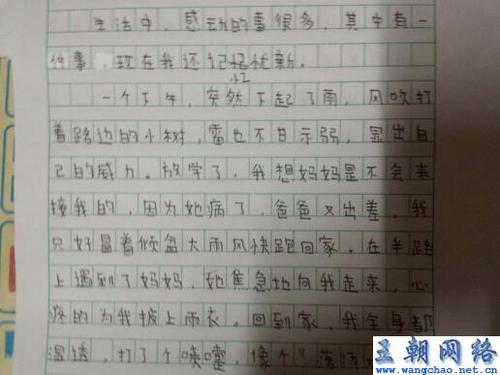 生活中，感动的事很多，其中有一
件事，现在我还记忆犹新。
一个下午，突然下起了雨，风吹打
着路边的小树，雷也不甘示弱，显出自
己的威力。放学了，我想妈妈是不会来
接我的，因为她病了，爸爸又出差。我
只好冒着倾盆大雨风快跑回家。在半路
上遇到了妈妈，她焦急地向我走来，心
疼的为我披上雨衣。回到家，我全身都
湿透，打了个喷嚏，像个"落汤
王朝网络
www.wangchao.net.cn